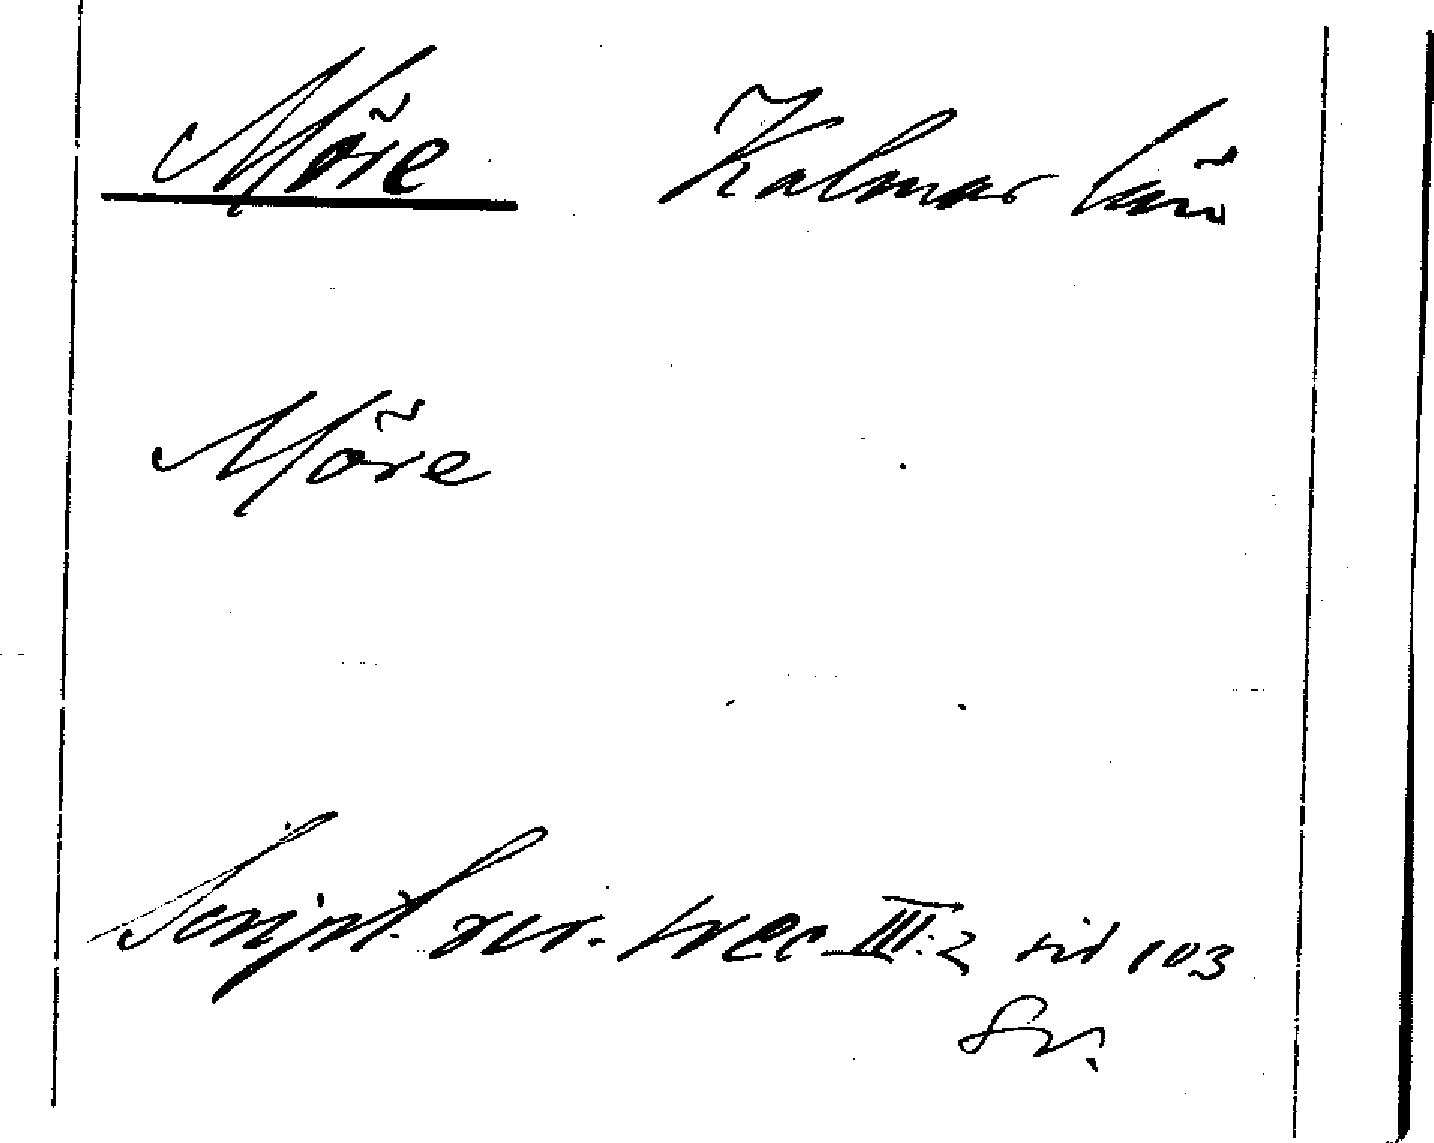 Möre Kalmar län
Möre
Script. rer. svec III:2 sid 103
Sv.